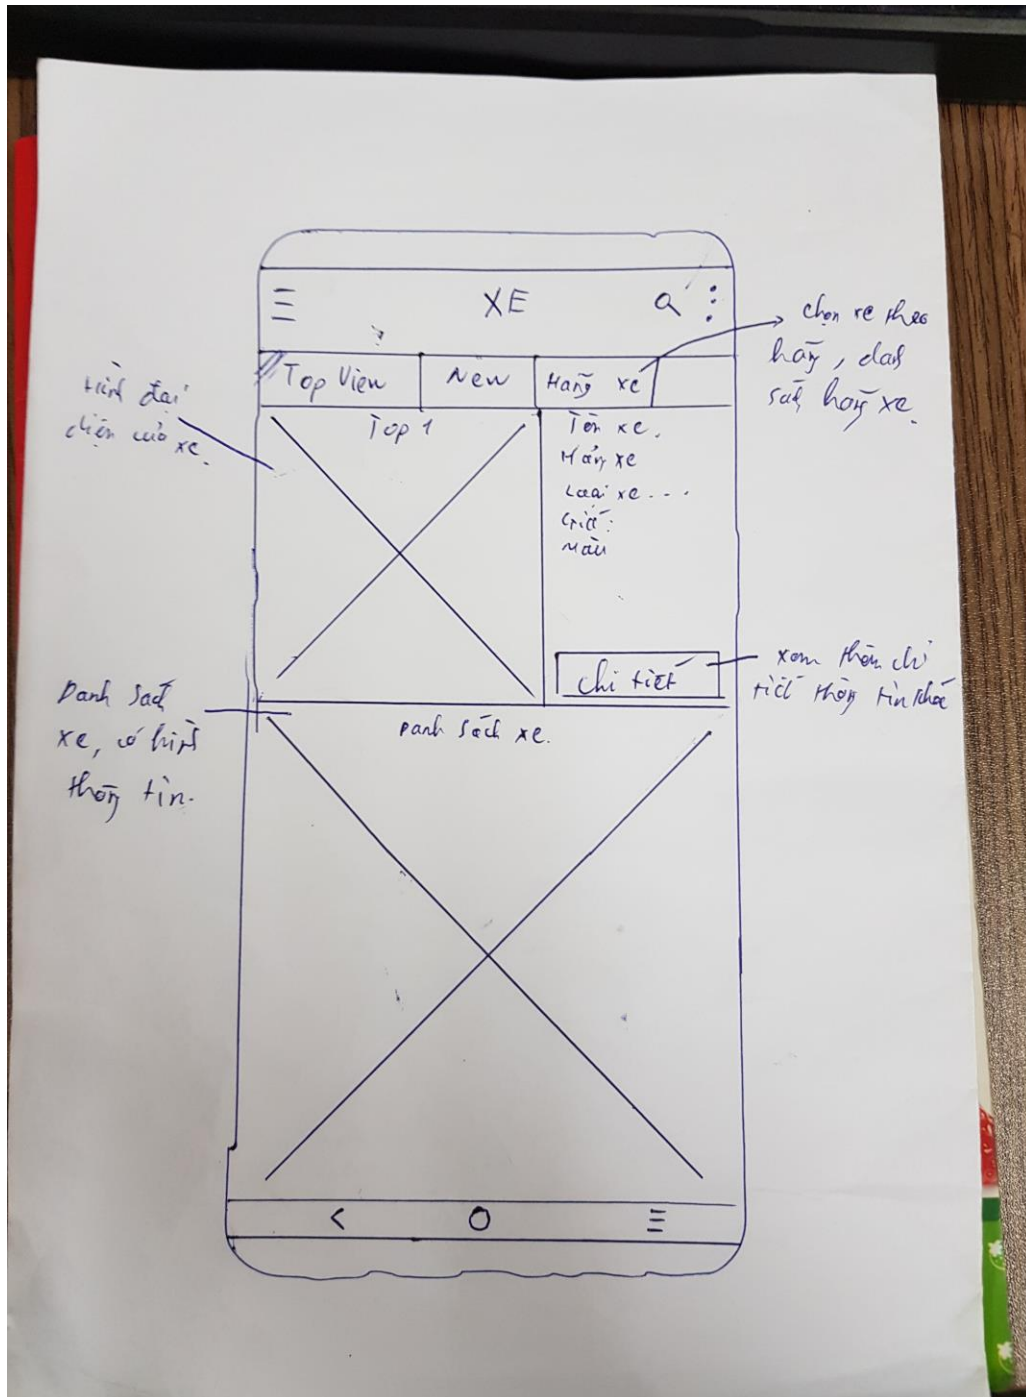 XE
chọn xe theo
hãng, danh
sách hãng xe.
Top View
New
Hãng xe
Hình đại
diện của xe.
Top 1
Tên xe.
Hãng xe
Loại xe...
Giá:
Màu
Chi tiết
xem thêm chi
tiết thông tin khác
Danh sách
xe, có hình
thông tin.
Danh sách xe.